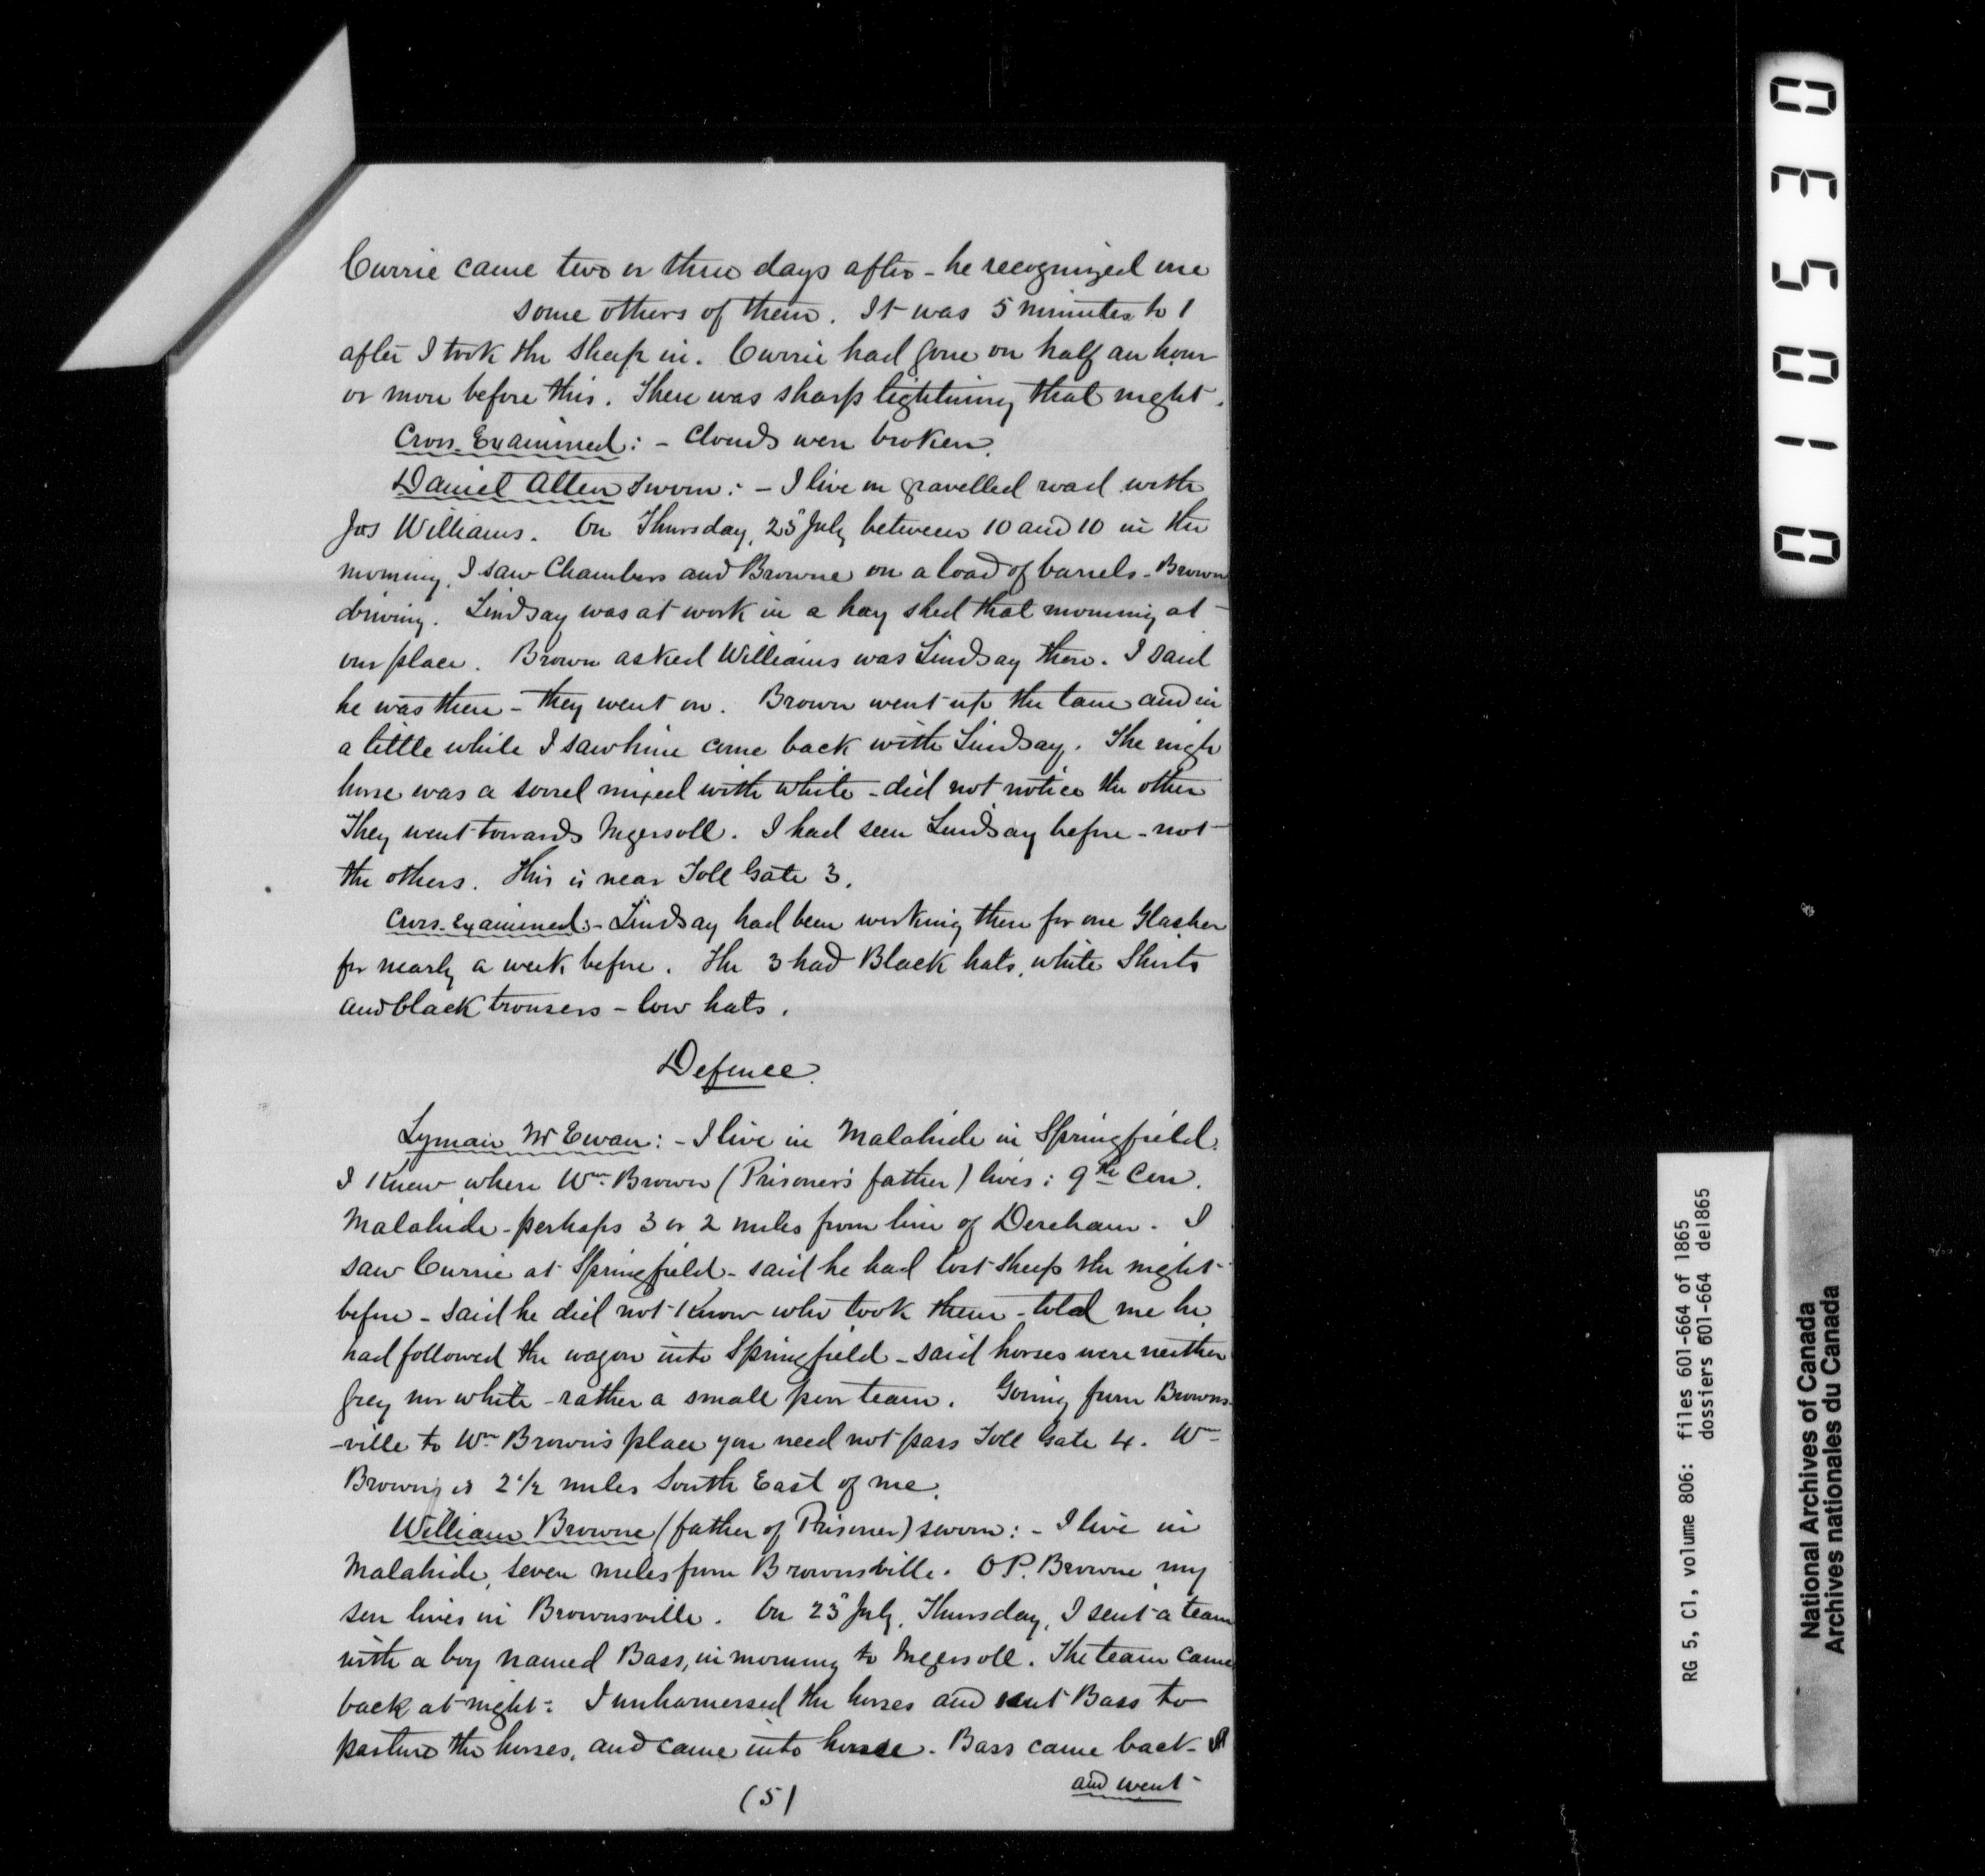 Currie came two or three days after - he recognized one
some others of them. It was 5 minutes to 1
after I took the sheep in. Currie had gone on half an hour
or more before this. There was sharp lightning that night.
Cross-Examined: - Clouds were broken.
Daniel Allen sworn: - I live on gravelled road with
Jos Williams. On Thursday, 25 July between 10 and 10 in the
morning, I saw Chambers and Browne on a load of barrels - Brown
driving. Lindsay was at work in a hay shed that morning at
our place. Brown asked Williams was Lindsay there. I said
he was there - they went on. Brown went up the lane and in
a little while I saw him come back with Lindsay. The nigh
horse was a sorrel mixed with white - did not notice the other
They went towards Ingersoll. I had seen Lindsay before - not
the others. This is near Toll Gate 3.
Cross-examined: - Lindsay had been working there for one Glasher
for nearly a week before. The 3 had Black hats, white Shirts
and black trousers - low hats.
Defence.
Lyman McEwan: - I live in Malahide in Springfield.
I knew where Wm. Brown (Prisoner's father) lives: 9th Con.
Malahide - perhaps 3 or 2 miles from line of Dereham. I
saw Currie at Springfield - said he had lost sheep the night
before - said he did not know who took them - told me he
had followed the wagon into Springfield - said horses were neither
grey nor white - rather a small poor team. Going from Browns-
-ville to Wm Brown's place you need not pass Toll Gate 4. Wm
Brown's is 2 1/2 miles South East of me.
William Browne (father of Prisoner) sworn: - I live in
Malahide, seven miles from Brownsville. O P. Browne my
son lives in Brownsville. On 23 July, Thursday, I sent a team
with a boy named Bass, in morning to Ingersoll. The team came
back at night: I unharnessed the horses and sent Bass to
pasture the horses, and came into house. Bass came back -
and went
(5)
0 1 0 5 3 0
RG 5, C1, volume 806: files 601-664 of 1865
dossiers 601-664 de1865
National Archives of Canada
Archives nationales du Canada